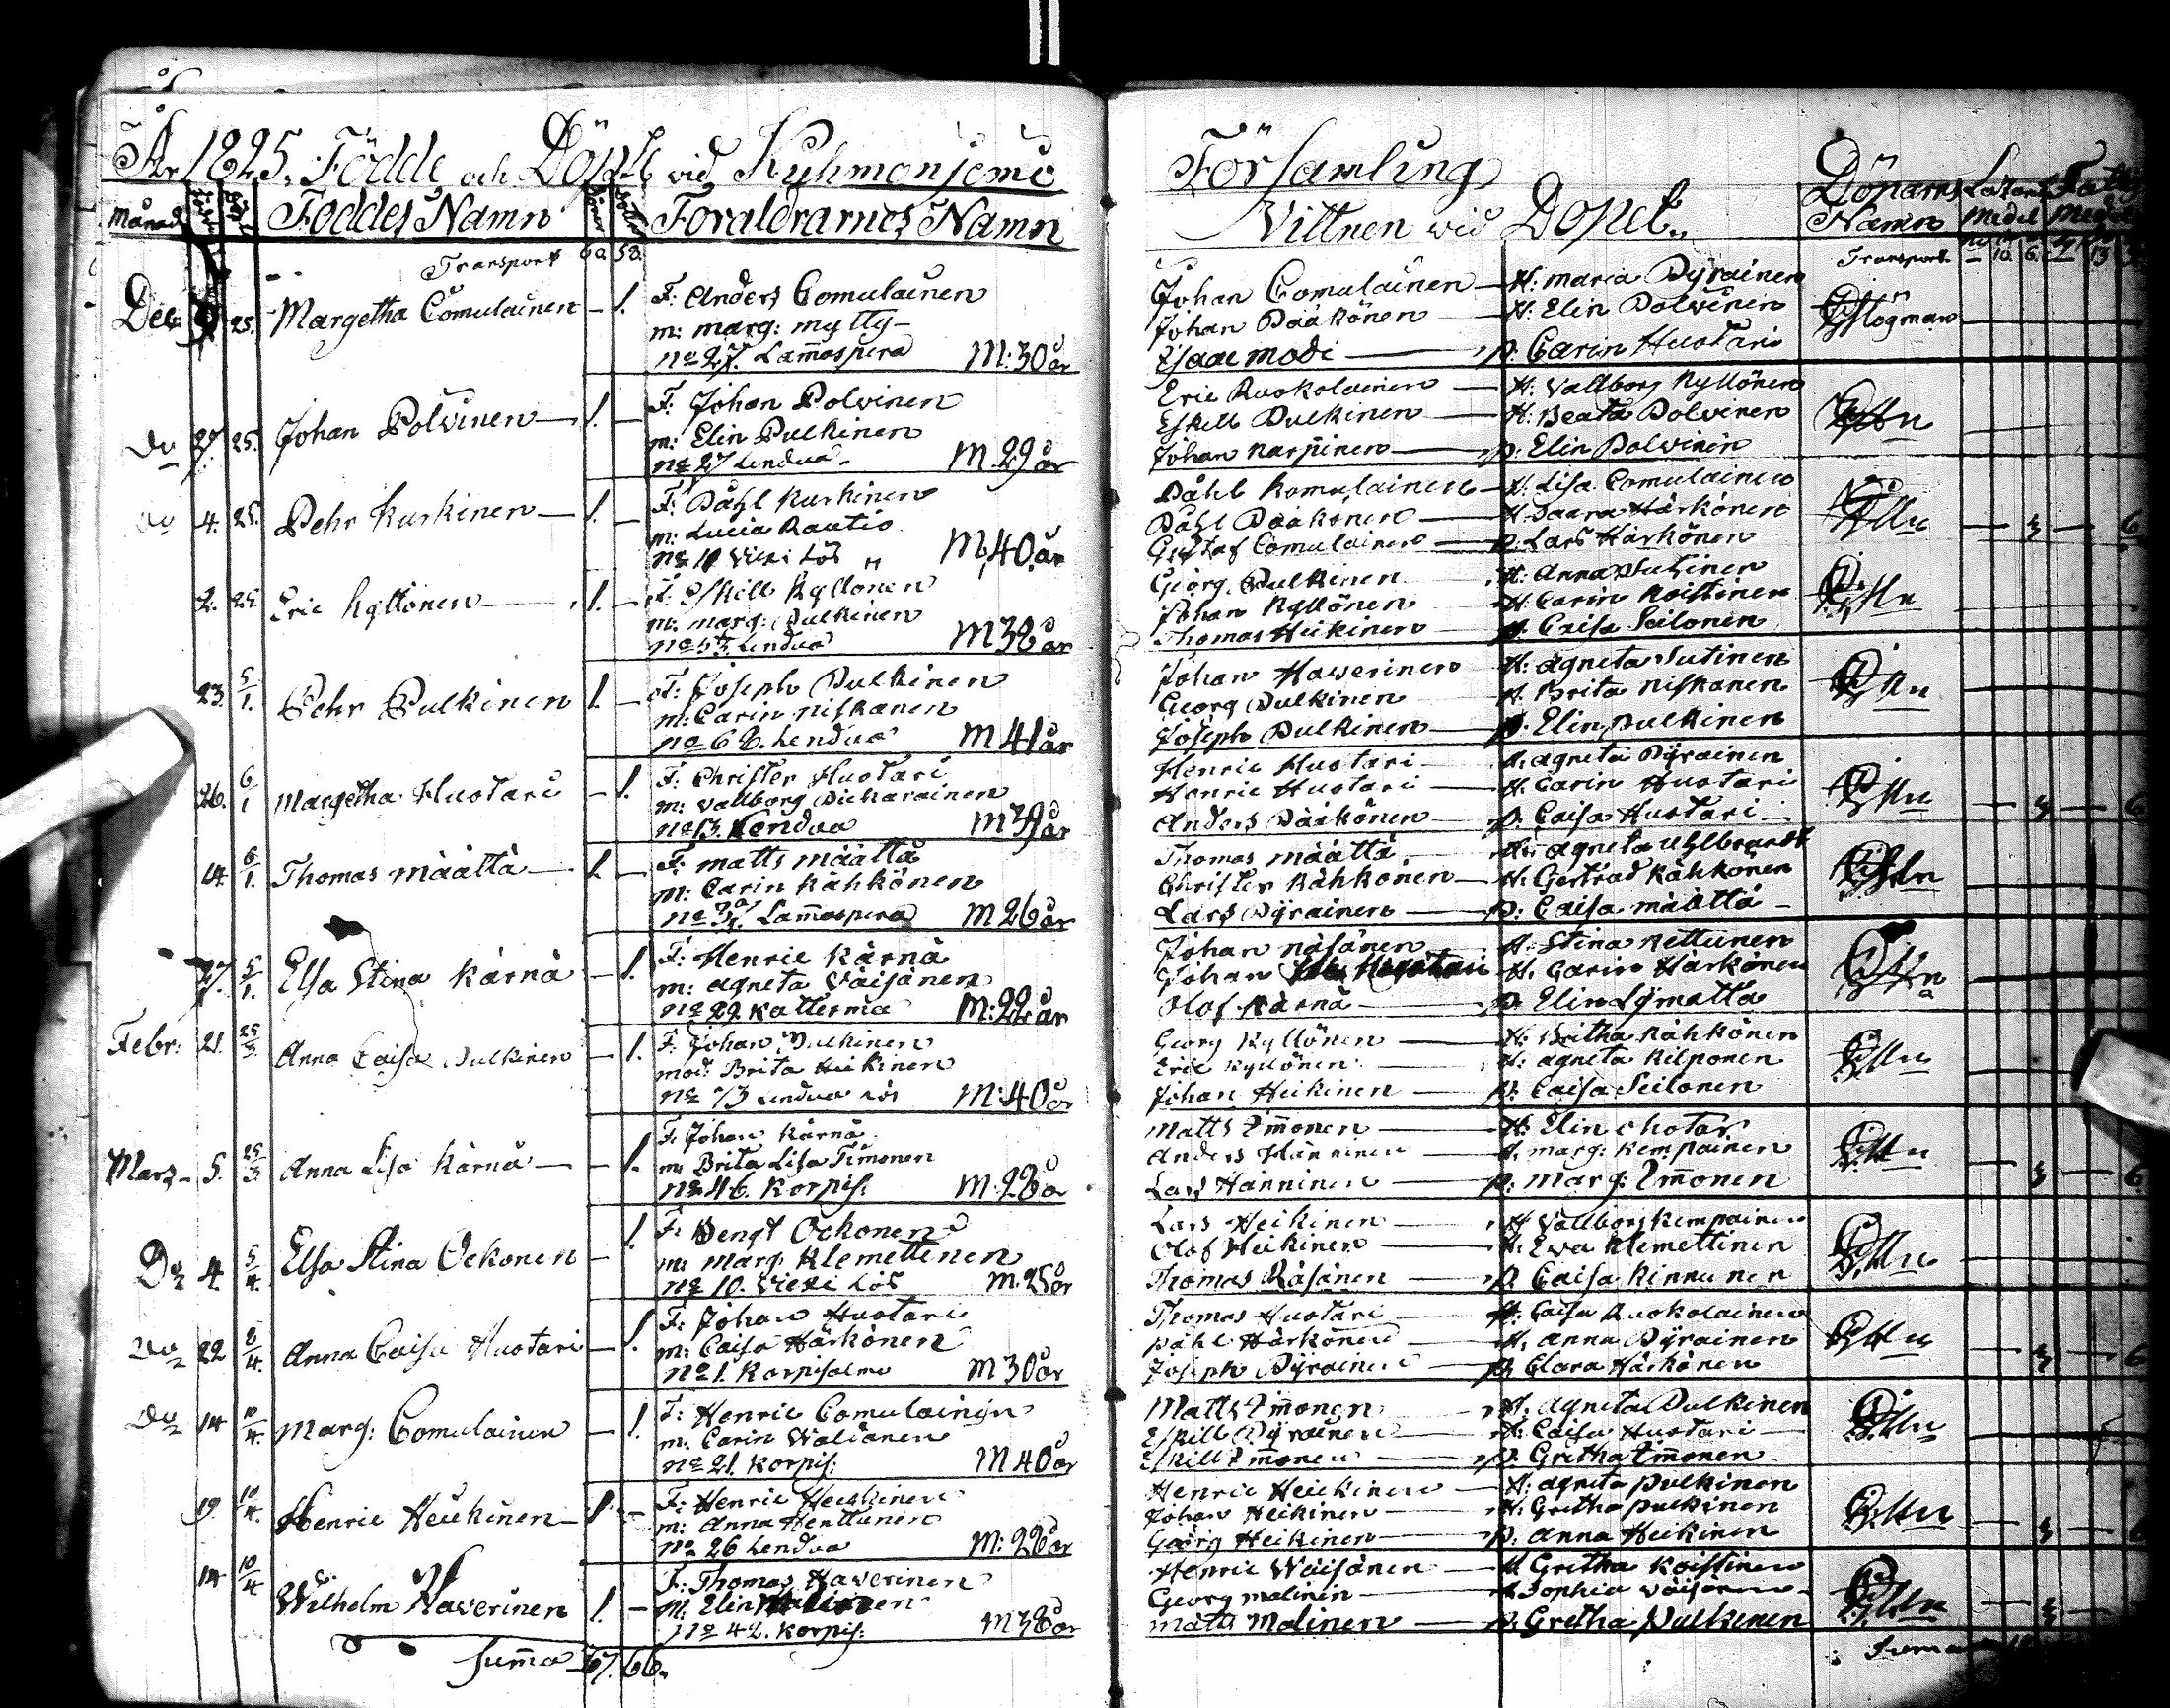 År 1825. Födde och Döpte vid Kuhmoniemi
Månad
Föddes Namn
Föräldrarnes Namn
Transport 60. 58.
Dec: 9 25. Margetha Comulainen — 1.
F: Anders Comulainen
m: marg: mylly —
No 27. Lam̄aspera M: 30 år
Do 27. 25. Johan Polvinen — 1. —
F: Johan Polvinen
m: Elin Pulkinen
No 27 Lendua. M. 29 år
Do 4. 25. Pehr Kurkinen — 1. —
F: Påhl Kurkinen
m: Lucia Rautio
No 10 Viexi Lös M. 40 år
2. 25. Eric Kyllönen — 1. —
F: Eskill Kyllönen
m: marg: Pulkinen
No 53 Lendua M 38 år
23. 5/1. Pehr Pulkinen 1. —
F: Joseph Pulkinen
m: Carin Niskanen
No 68. Lendua M 41 år
26. 6/1 Margetha Huotari — 1.
F: Christer Huotari
m: Vallborg Pickarainen
No 13. Lendua M 39 år
14. 6/1. Thomas Määttä — 1 —
F: Matts Määttä
m: Carin Kähkönen
No Lam̄aspera M 26 år
27. 5/1. Elsa Stina Kärnä — 1.
F: Henric Kärnä
m: Agneta Väisänen
No 29. Katterma M: 22 år
Febr: 21. 25/3. Anna Caisa Pulkinen — 1.
F: Johan Pulkinen
mod: Brita Heikinen
No 73 Lendua Lös M: 40 år
Mars — 5. 25/3 Anna Lisa Kärnä — 1.
F: Johan Kärnä
m: Brita Lisa Timonen
No 46. Korpis: M: 28 år
Do 4. 5/4. Elsa Stina Ockonen — 1.
F: Bengt Ockonen
m: marg: Klemettinen
No 10. Viexi Lös M. 25 år
Do 22 8/4. Anna Caisa Huotari — 1.
F: Johan Huotari
m: Caisa Härkönen
No 1. Korpisalmi M 30 år
Do 14 10/4. Marg: Comulainen — 1.
F: Henric Comulainen
m: Carin Waldanen
No 21. Korpis: M 40 år
19. 10/4. Henric Heikinen — 1. —
F: Henric Heickinen
m: Anna Henttunen
No 26 Lendua M: 28 år
14 10/4 Wilhelm Haverinen 1. —
F: Thomas Haverinen
M: Elin
No 42. Korpis: M 38 år
Sum̄a 67. 66.
Församling
Vittnen vid Döpel.
Döparns Namn
Medel
Transport
Johan Comulainen — H: Maria Pyrainen
Johan Pääkönen — H: Elin Polvinen
Isaac Modi — p: Carin Huotari
Högman
Eric Ruokolainen — H: Vallborg Kyllönen
Eskill Pulkinen — H: Beata Polvinen
Johan Karppinen — p: Elin Polvinen
Påhl Komulainen — H: Lisa Comulainen
Påhl Pääkönen — H: Saara Härkönen
Gustaf Comulainen — p: Lars Härkönen
Georg Pulkinen H: Anna Sutinen
Johan Kyllönen H: Carin Koistinen
Thomas Heikinen — p: Caisa Seilonen
Johan Haverinen H: Agneta Sutinen
Georg Pulkinen H: Brita Niskanen
Joseph Pulkinen — p: Elin Pulkinen
Henric Huotari — H: Agneta Pyrainen
Henric Huotari — H: Carin Huotari
Anders Pääkönen — p: Caisa Huotari —
Thomas Määttä — H: Agneta Uhlbrandt
Christer Kähkönen — H: Gertrud Kähkönen
Lars Pyrainen — p: Caisa Määttä —
Johan Näsänen H: Stina Kettunen
Johan H: Carin Härkönen
Olof Kärnä — p: Elin Lymatta
Georg Kyllönen — H: Britha Kähkönen
Eric Kyllönen H: Agneta Kilponen
Johan Heikinen — p: Caisa Seilonen
Matts Im̄onen — H: Elin
Anders Hänninen — H: marg: Kempainen
Lars Hänninen — p: Marg: Im̄onen
Lars Heikinen — H: Vallborg Kempainen
Olof Heikinen — H: Eva Klemettinen
Thomas Räsänen — p: Caisa Kinnunen
Thomas Huotari — H: Caisa Ruokolainen
Påhl Härkönen — H: Anna Pyrainen
Joseph Pyrainen — p: Clara Härkönen
Matts Im̄onen — H: Agneta Pulkinen
Eskill Pyrainen — H: Caisa Huotari —
Eskill Im̄onen — p: Gretha Im̄onen
Henric Heickinen — H: Agneta Pulkinen
Johan Heikinen — H: Gretha Pulkinen
Georg Heikinen — p: Anna Heikinen
Henric Wäisänen — H Gretha Koistinen
Georg Malinen — H Sophia Väisänen —
Matts Malinen — p: Gretha Pulkinen